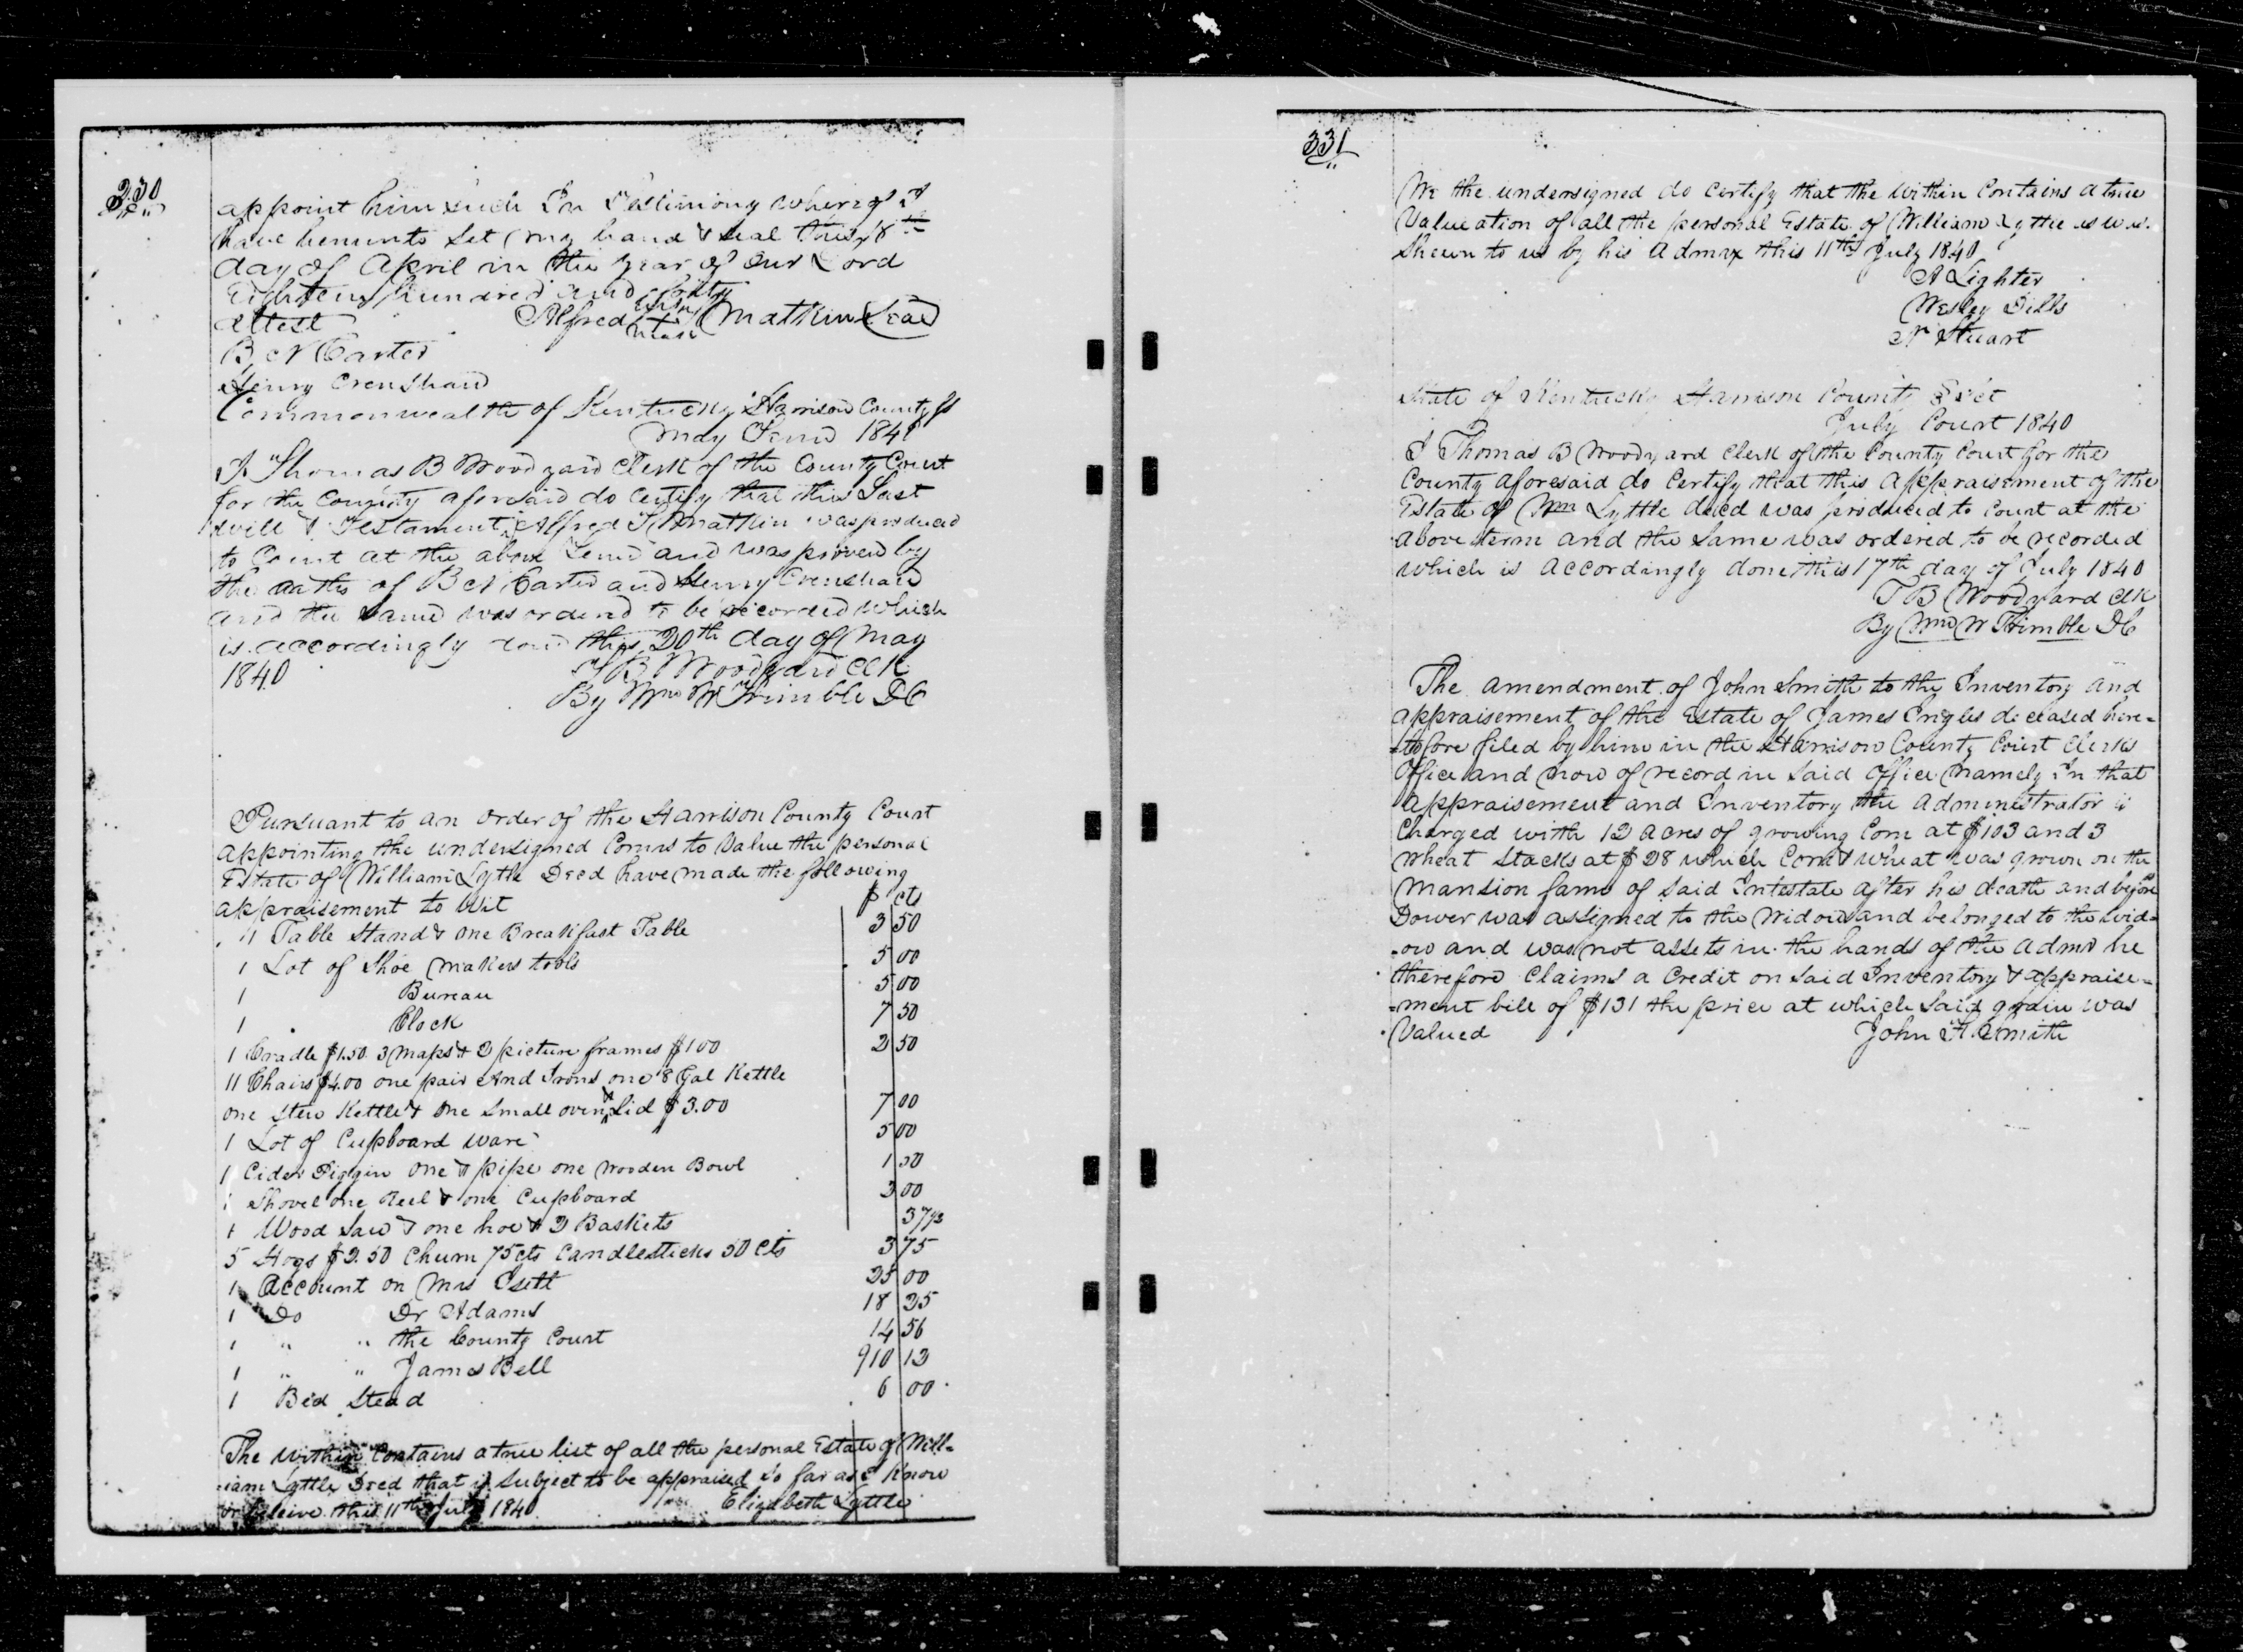 330
appoint him such In Testimony whereof I
have hereunto Set my hand & seal this 8th
day of April in the year of Our Lord
Eighteen hundred and forty
Attest Alfred his + mark Matkin Seal
B N Carter
Henry Crenshaw
Commonwealth of Kentucky Harrison County Ss
May Term 1840
I Thomas B Woodyard Clerk of the County Court
for the County aforesaid do Certify that this Last
will & Testament Alfred Matkin was produced
to Court at the above Term and was proven by
the oaths of B N Carter and Henry Crenshaw
and the Same was ordered to be recorded which
is accordingly done this 20th day of May
1840 T B Woodyard Clk
By Wm W Trimble DC
Pursuant to an order of the Harrison County Court
appointing the undersigned Comrs to Value the personal
Estate of William Lytle Decd have made the following
appraisement to wit $ cts
11 Table Stand & one Breakfast Table 3 50
1 Lot of Shoe Makers tools 5 00
1 Bureau 5 00
1 Clock 7 50
1 Cradle $1.50 3 Maps & 2 picture frames $1 00 2 50
11 Chairs $4.00 one pair And Irons one 8 Gal Kettle
one Stew Kettle & One Small oven & Lid $3.00 7 00
1 Lot of Cupboard ware 5 00
1 Cider Piggin one pipe one wooden Bowl 1 00
1 Shovel one Reel & one Cupboard 3 00
1 Wood Saw & one hoe & 2 Baskets 37 1/2
5 Hogs $2.50 Churn 75cts Candlesticks 50 cts 3 75
1 Account on Mrs 25 00
1 Do Dr Adams 18 25
1 " " the County Court 14 56
1 " " James Bell 910 12
1 Bed Stead 6 00
The within Contains a true list of all the personal Estate of Will-
iam Lyttle Decd that is Subject to be appraised So far as I Know
or beleive this 11th July 1840 Elizabeth Lyttle
331
We the undersigned do Certify that the within Contains a true
Valueation of all the personal Estate of William Lyttle as was
Shewn to us by his Admrx this 11th July 1840
A Lighter
Wesley Dills
N Stuart
State of Kentucky Harrison County Sct
July Court 1840
I Thomas B Woodyard Clerk of the County Court for the
County aforesaid do Certify that this Appraisement of the
Estate of Wm Lyttle decd was produced to Court at the
above term and the Same was ordered to be recorded
which is accordingly done this 17th day of July 1840
T B Woodyard Clk
By Wm W Trimble DC
The amendment of John Smith to the Inventory and
appraisement of the Estate of James Ingles deceased here=
=tofore filed by him in the Harrison County Court Clerks
Office and now of record in Said Office Namely In that
Appraisement and Inventory the Administrator is
Charged with 12 Acres of growing Corn at $103 and 3
Wheat Stacks at $28 which Corn & wheat was grown on the
Mansion farm of Said Intestate after his death and before
Dower was assigned to the Widow and belonged to the wid=
=ow and was not assets in the hands of the Admr he
therefore Claims a Credit on Said Inventory & appraise=
=ment bill of $131 the price at which Said grain was
Valued John A Smith